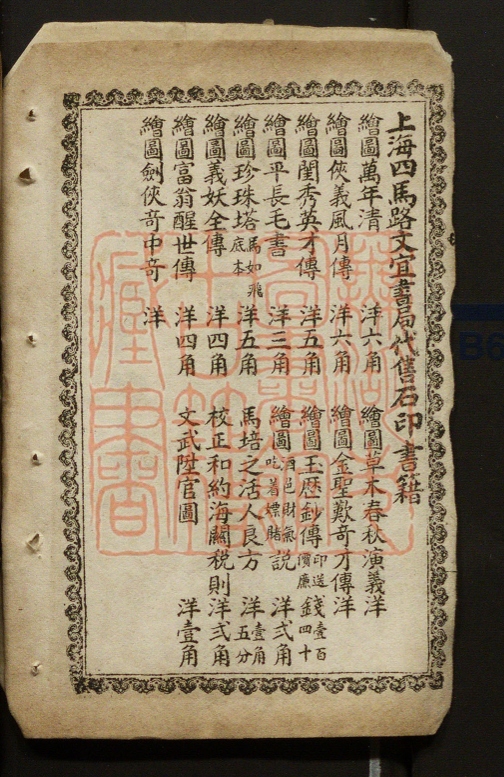 上海四馬路文宜書局代售石印書籍
繪圖萬年清 洋六角 繪圖草木春秋演義洋
繪圖俠義風月傳 洋六角 繪圖金聖歎奇才傳洋
繪圖閨秀英才傳 洋五角 繪圖玉歷鈔傳 印送價廉 錢壹百 錢四十
繪圖平長毛書 洋三角 繪圖 酒色財氣 吃着嫖賭 説 洋弍角
繪圖珍珠塔 馬如飛 底本 洋五角 馬培之活人良方 洋 壹角 五分
繪圖義妖全傳 洋四角 校正和約海關税則洋弍角
繪圖富翁醒世傳 洋四角 文武陞官圖 洋壹角
繪圖劍俠奇中奇 洋
藏書